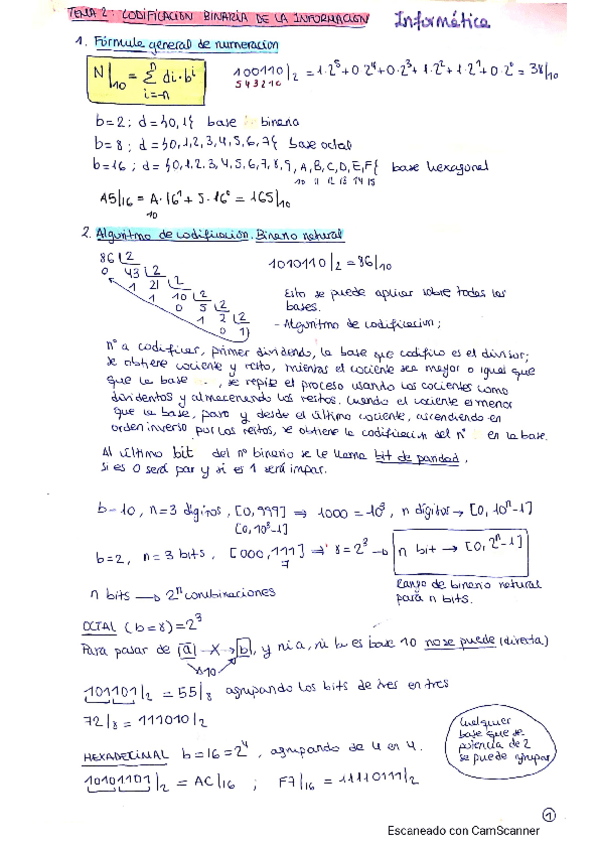 TEMA 2: CODIFICACIÓN BINARIA DE LA INFORMACIÓN Informática
1. Fórmula general de numeración
N|10 = Σ di·b^i
n
i=-n
100110|2 = 1·2^5+0·2^4+0·2^3+1·2^2+1·2^1+0·2^0 = 38|10
5 4 3 2 1 0
b=2; d={0,1} base binaria
b=8; d={0,1,2,3,4,5,6,7} base octal
b=16; d={0,1,2,3,4,5,6,7,8,9,A,B,C,D,E,F} base hexagonal
10 11 12 13 14 15
A5|16 = A·16^1 + 5·16^0 = 165|10
10
2. Algoritmo de codificación. Binario natural
86 2
0 43 2
1 21 2
1 10 2
0 5 2
1 2 2
0 1
1010110|2 = 86|10
Esto se puede aplicar sobre todas las
bases.
- Algoritmo de codificación;
nº a codificar, primer dividendo, la base que codifico es el divisor;
se obtiene cociente y resto, mientras el cociente sea mayor o igual que
que la base , se repite el proceso usando los cocientes como
dividentos y almacenando los restos. Cuando el cociente es menor
que la base, paro y desde el último cociente, ascendiendo en
orden inverso por los restos, se obtiene la codificación del nº en la base.
Al último bit del nº binario se le llama bit de paridad,
si es 0 será par y si es 1 será impar.
b=10, n=3 dígitos, [0,999] ⇒ 1000=10^3, n dígitos → [0, 10^n-1]
[0, 10^3-1]
b=2, n=3 bits, [000,111] ⇒ 8=2^3 → n bit → [0, 2^n-1]
7
n bits → 2^n combinaciones
Rango de binario natural
para n bits.
OCTAL (b=8)=2^3
Para pasar de a -X→ b, y ni a, ni b es base 10 no se puede (directa)
10
101101|2 = 55|8 agrupando los bits de tres en tres
72|8 = 111010|2
HEXADECIMAL b=16=2^4, agrupando de 4 en 4.
10101101|2 = AC|16 ; F7|16 = 11110111|2
Cualquier
base que sea
potencia de 2
se puede agrupar
1
Escaneado con CamScanner